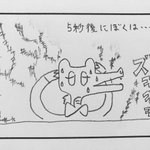 5秒後にぼくは…
ズ